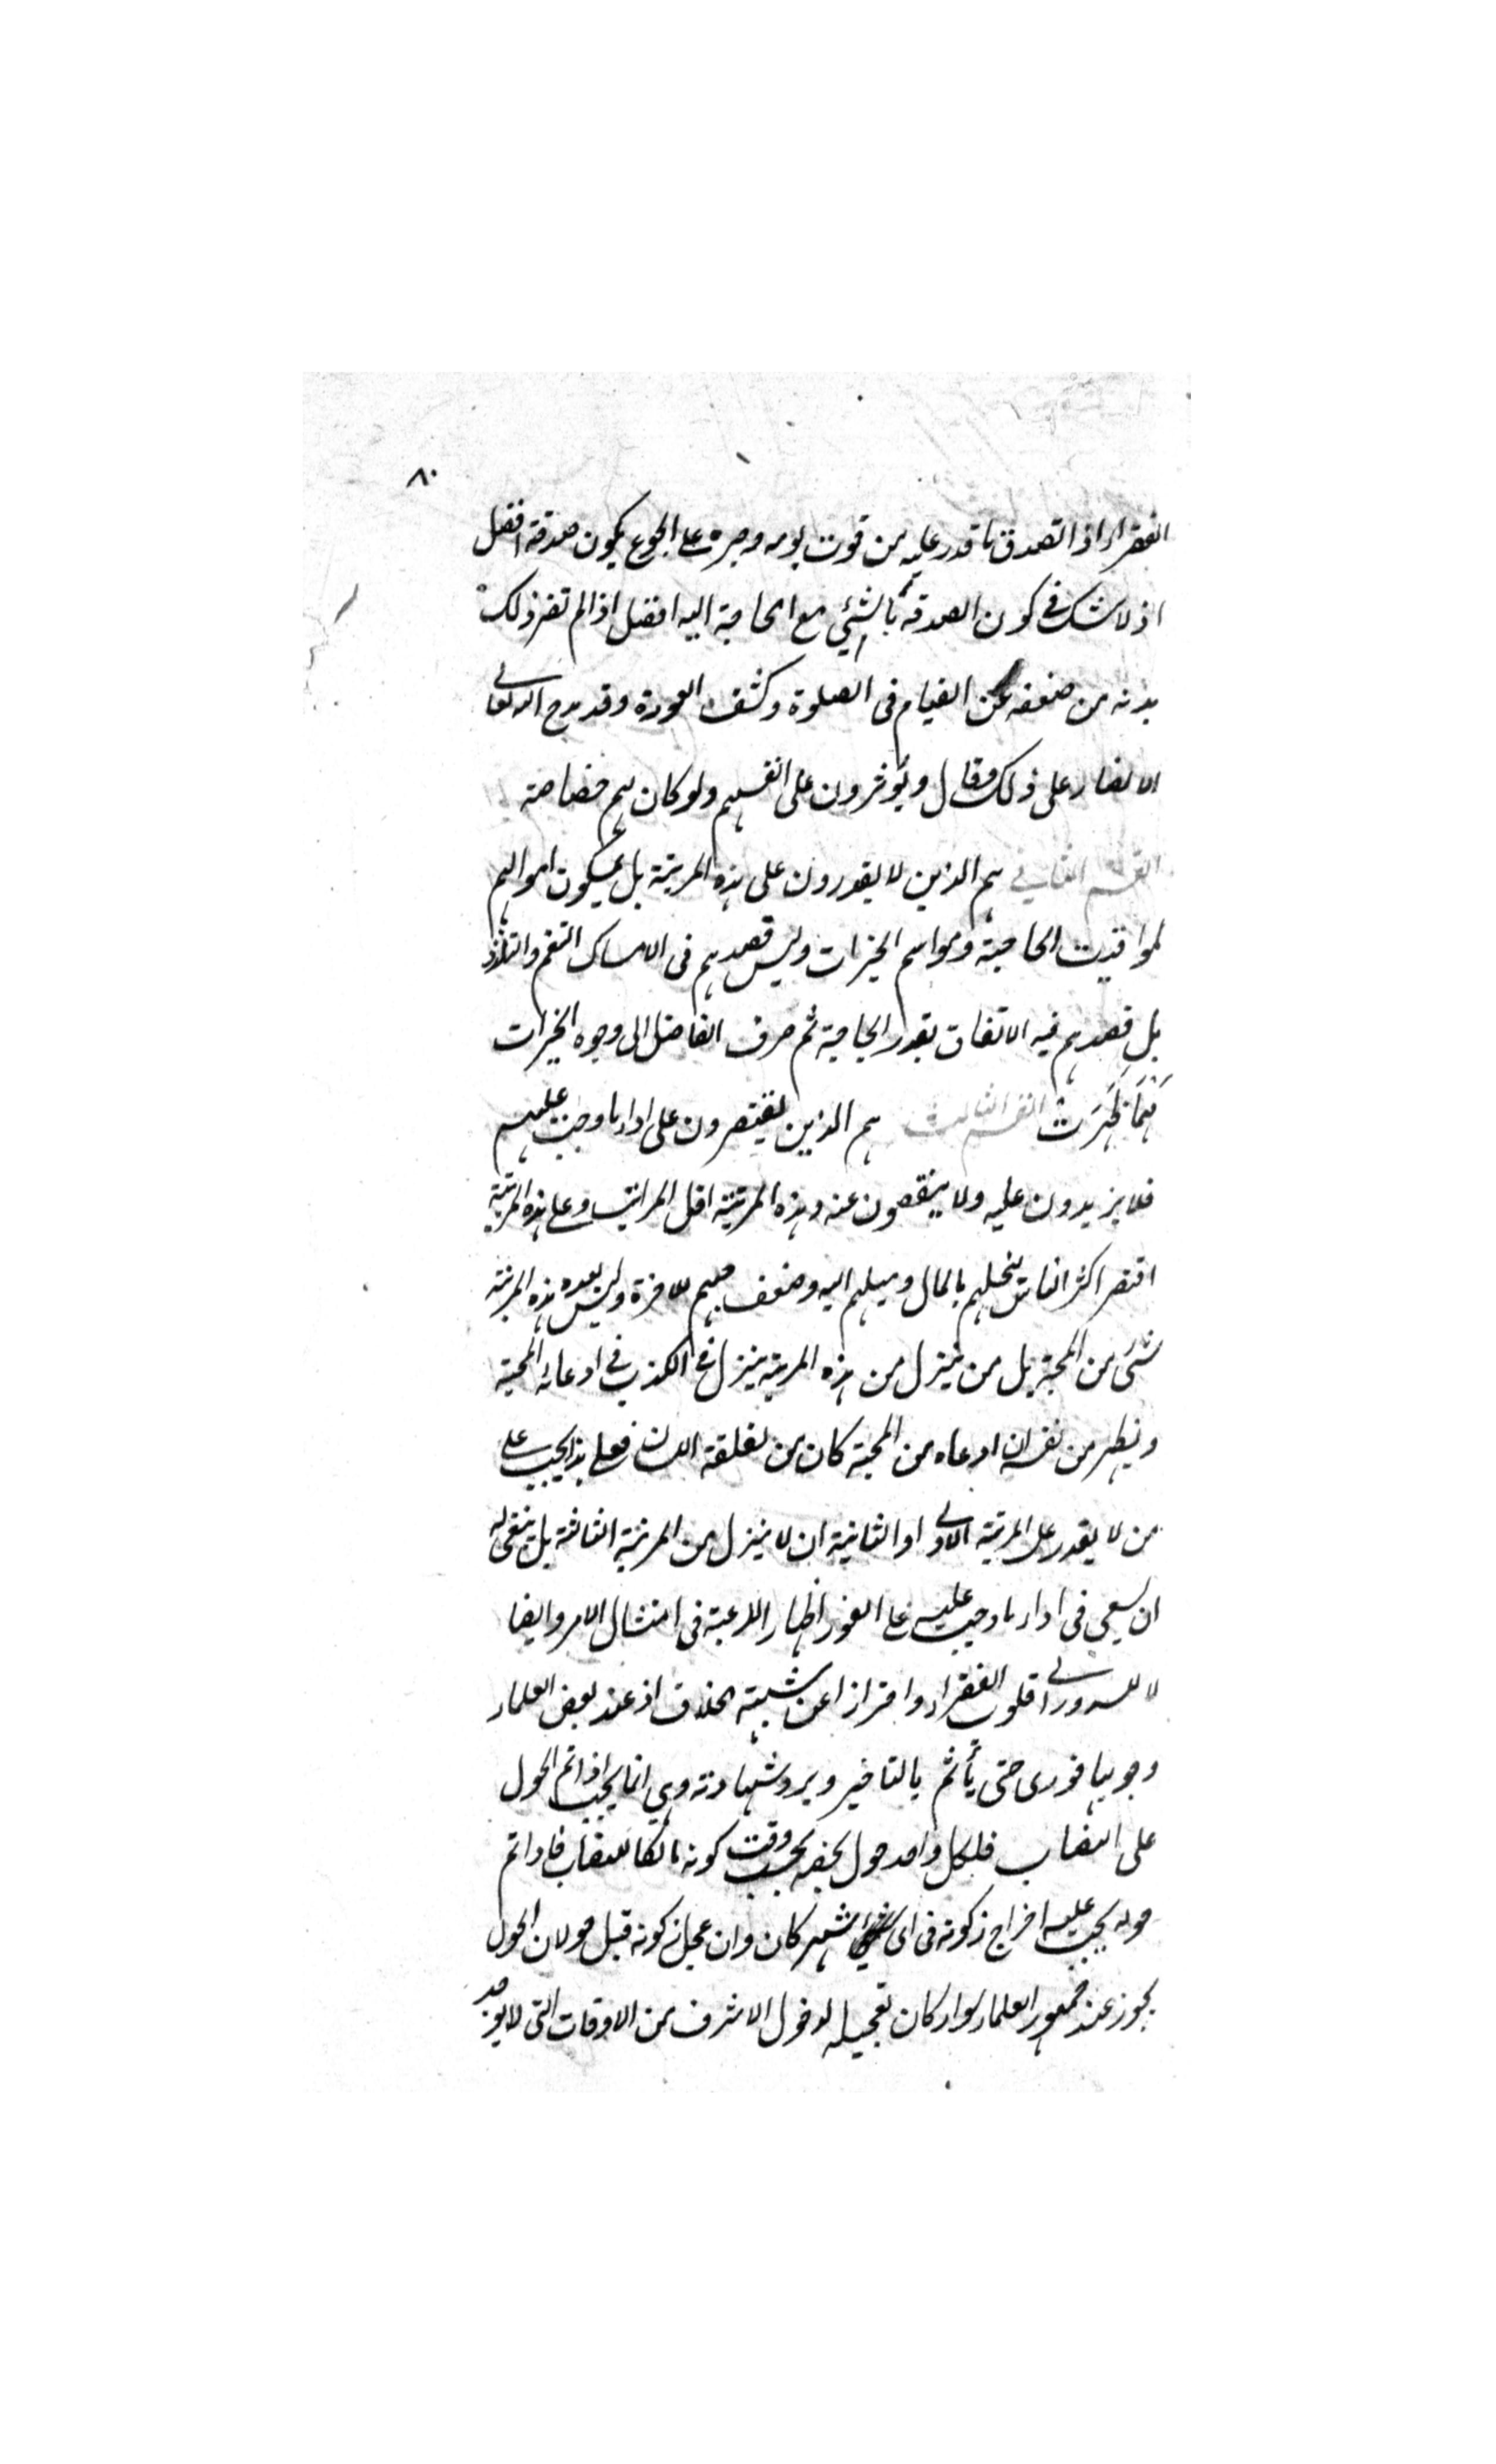 ٨٠
الفقراء اذا تصدق ما قدر عليه من قوت يومه وصبره على الجوع يكون صدقة افضل
اذ لا شك فى كون الصدقة بالشئ مع الحاجة اليه افضل اذا لم تضر ذلك
بدنه من ضعفه عن القيام فى الصلوة وكشف العورة وقد مدح الله تعالى
الانصار على ذلك وقال ويؤثرون على انفسهم ولو كان بهم خصاصة
القسم الثانى هم الذين لا يقدرون على هذه المرتبة بل يمسكون اموالهم
لمواقيت الحاجة ومواسم الخيرات وليس قصدهم فى الامساك التنعم والتلذذ
بل قصدهم فيه الانفاق بقدر الحاجة ثم صرف الفاضل الى وجوه الخيرات
القسم الثالث هم الذين يقتصرون على اداء ما وجب عليهم
فلا يزيدون عليه ولا ينقصون عنه وهذه المرتبة اقل المراتب وعلى هذه المرتبة
اقتصر اكثر الناس لبخلهم بالمال وميلهم اليه وضعف حبهم للاخرة وليس بعده هذه المرتبة
شئ من المحبة بل من ينزل من هذه المرتبة ينزل فى الكذب فى ادعائه المحبة
ويظهر من نفسه ان ادعاه من المحبة كان من لقلقة اللسان فعلى هذا يجب على
من لا يقدر على المرتبة الاولى او الثانية ان لا ينزل من المرتبة الثالثة بل ينبغى له
ان يسعى فى اداء ما وجب عليه على الفور اظهارا للرغبة فى امتثال الامر وايضا
لا للسرور الى قلوب الفقراء وافرازا عن شبهة الخلاف اذ عند بعض العلماء
وجوبها فورى حتى يأثم بالتاخير ويرد شهادته وهى انما يجب اذا تم الحول
على النصاب فلكل واحد حول يخصه بحسب وقت كونه مالكا للنصاب فاذا تم
حوله يجب عليه اخراج زكوته فى اى شهر كان وان عجل زكوته قبل حولان الحول
يجوز عند جمهور العلماء سواء كان تعجيله لدخول الاشرف من الاوقات التى لا يوجد